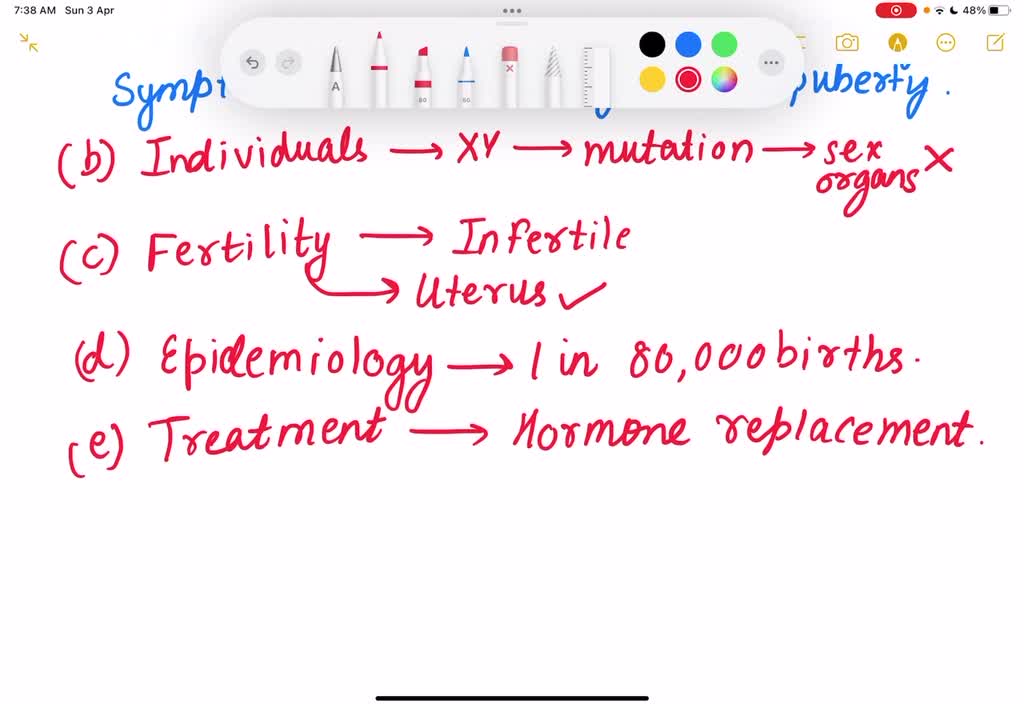 7:38 AM Sun 3 Apr 48%
A 80 50
puberty.
(b) Individuals → XY → mutation → sex organs X
(c) Fertility → Infertile
→ Uterus ✓
(d) Epidemiology → 1 in 80,000 births.
(e) Treatment → Hormone replacement.